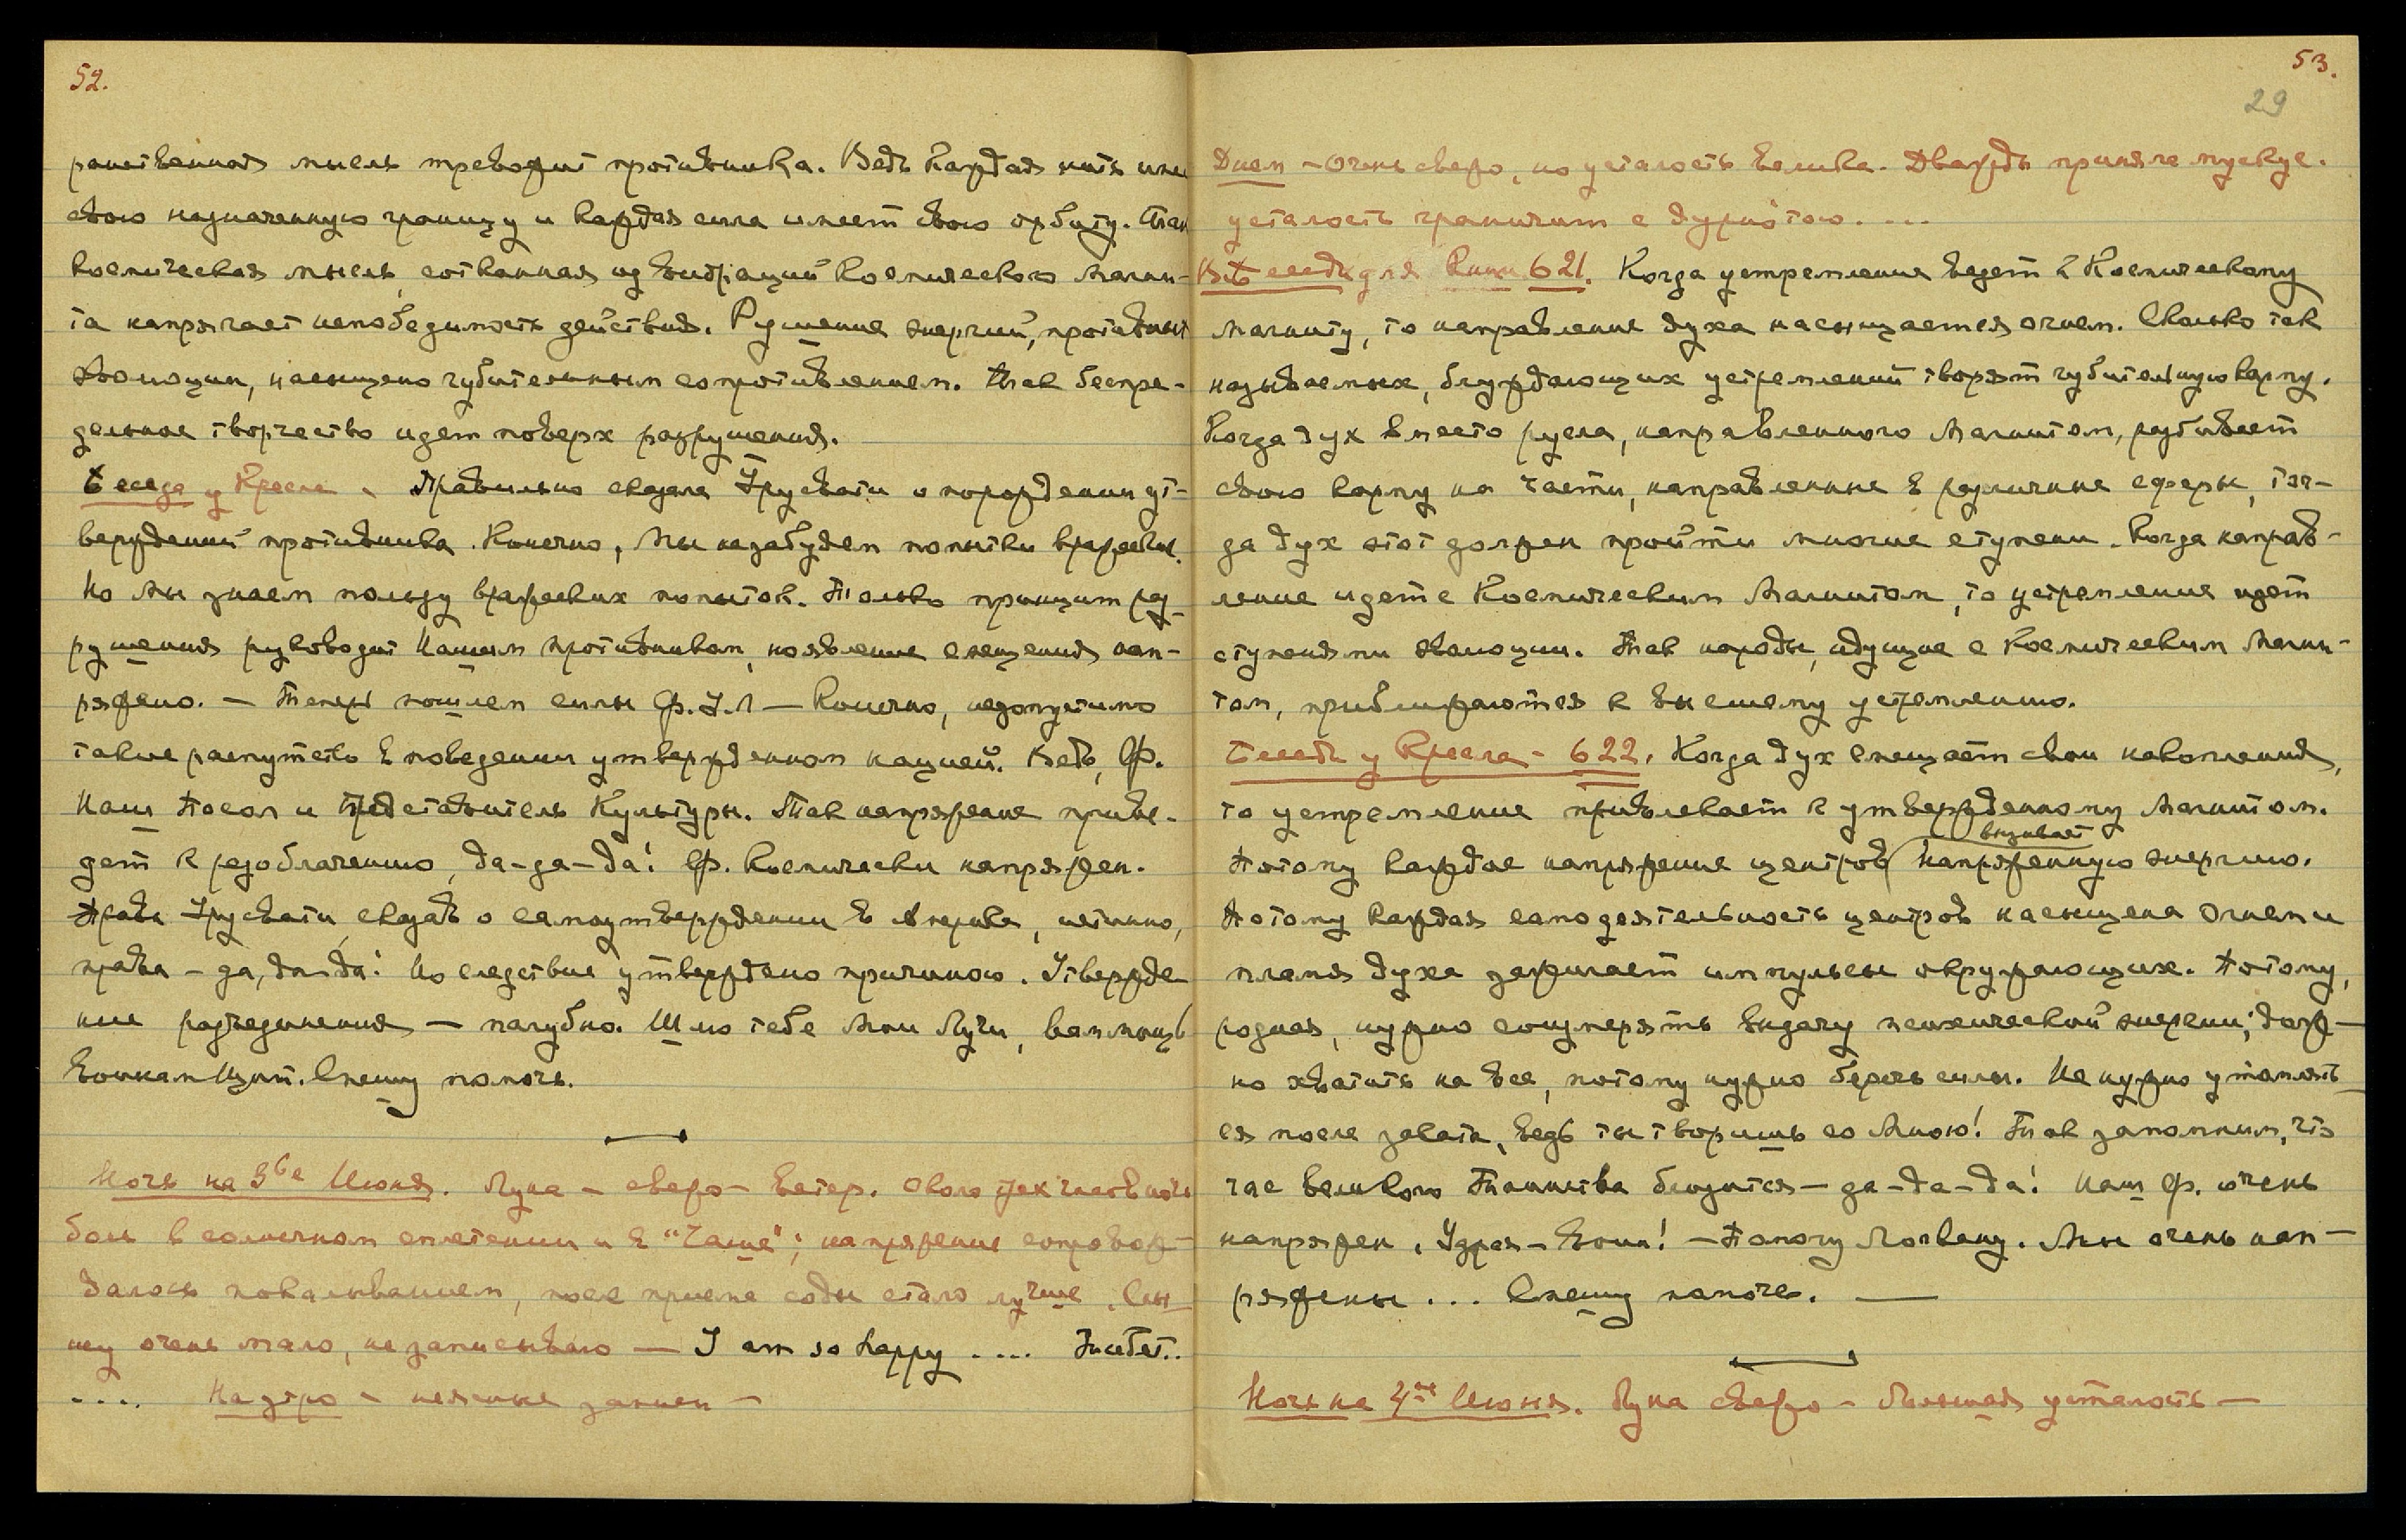 52.
ранственная мысль тревожит противника. Ведь каждая нить имее
свою назначенную границу и каждая сила имеет свою орбиту. Так
космическая мысль, сотканная из вибраций Космического Магни-
та напрягает непобедимость действия. Рушение энергий, противных
эволюции, насыщено губительным сопротивлением. Так беспре-
дельное творчество идет поверх разрушения.
Беседа у Кресла - Правильно сказала Урусвати о порождении ут-
верждений противника. Конечно, Мы не забудем попытки вражеские.
Но Мы знаем пользу вражеских попыток. Только принцип раз-
рушения руководит Нашим противником, но явление смещения нап-
ряжено. — Теперь пошлем силы Ф. У. Л — Конечно, недопустимо
такие распутство в поведении утвержденном нацией. Ведь, Ф.
Наш Посол и Представитель Культуры. Так напряжение приве-
дет к разоблачению, да-да-да! Ф. Космически напряжен.
Права Урусвати, сказав о самоутверждении в Америке, истинно,
права - да, да-да! Но следствие утверждено причиною. Утвержде
ние разъединения — пагубно. Шлю тебе Мои Лучи,
Спешу помочь.
Ночь на 3ье Июня. Луна - свежо - ветер. Около трех часов ночи
боль в солнечном сплетении и в "Чаше"; напряжение сопровож-
далось покалыванием, после приема соды стало лучше. Слы-
шу очень мало, не записываю — I am so happy ....
.... На утро - неясные записи —
53.
29
Днем - Очень свежо, но усталость велика. Дважды приняла мускус.
усталость граничит с дурнотою. ...
Беседа для Книги 621. Когда устремление ведет к Космическому
Магниту, то направление духа насыщается огнем. Сколько так
называемых, блуждающих устремлений творят губительную карму.
Когда дух вместо русла, направленного Магнитом, разбивает
свою карму на части, направленные в различные сферы, тог-
да дух этот должен пройти многие ступени. Когда направ-
ление идет с Космическим Магнитом, то устремление идет
ступенями эволюции. Так народы, идущие с Космическим Магни-
том, приближаются к высшему устремлению.
Беседа у Кресла - 622. Когда дух смещает свои накопления,
то устремление привлекает к утвержденному Магнитом.
вызывает
Потому каждое напряжение центров напряженную энергию.
Потому каждая самодеятельность центров насыщена Огнем и
пламя духа зажигает импульсы окружающих. Потому,
родная, нужно соизмерять выдачу психической энергии; долж-
но хватить на все, потому нужно беречь силы. Не нужно утомлять
ся после заката, ведь ты творишь со Мною! Так запомним, что
час великого Таинства близится - да-да-да! Наш Ф. очень
напряжен. Удрая - Воин! - Помогу Логвану. Мы очень нап-
ряжены ... Спешу помочь. —
Ночь на 4ое Июня. Луна свежо - большая усталость —